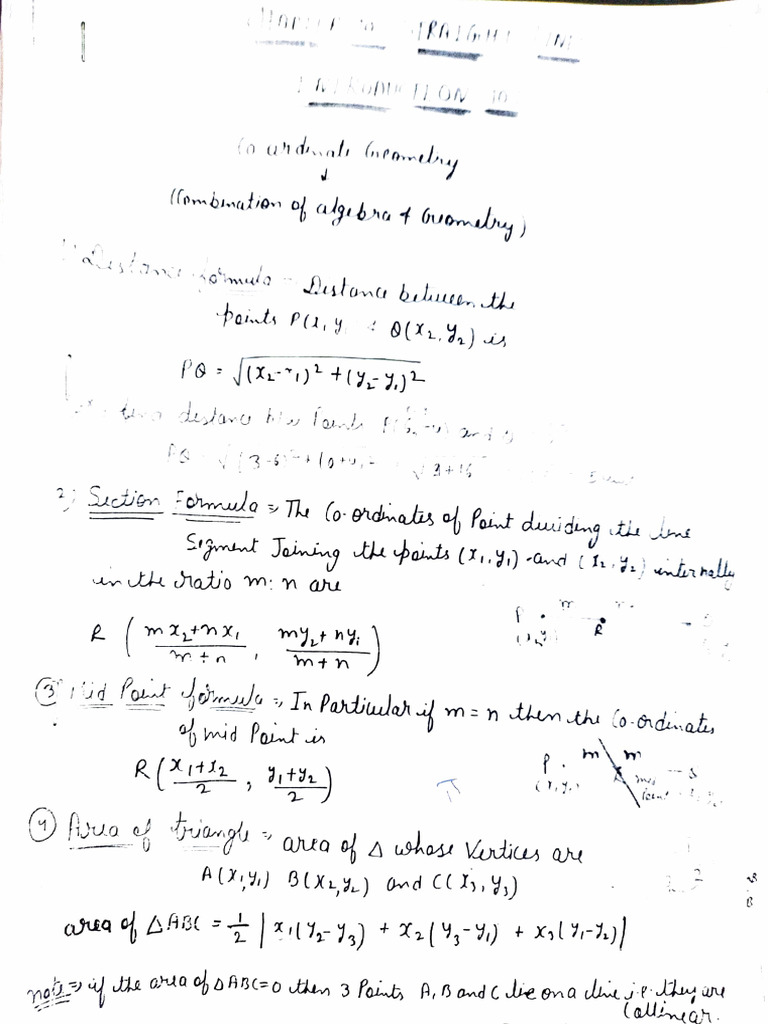 CHAPTER STRAIGHT LINE
INTRODUCTION TO
Co-ordinate Geometry
↓
(Combination of algebra & Geometry)
Distance formula - Distance between the
points P(x, y & Q(x2, y2) is
PQ = √(x2-x1)² + (y2-y1)²
distance Points and
PQ = √(3-6)² + (0+4)² = √9+16
2) Section Formula ⇒ The Co-ordinates of Point dividing the line
Segment Joining the points (x1, y1) and (x2, y2) internally
in the ratio m:n are
P m
R
R (mx2+nx1/m+n, my2+ny1/m+n)
③ Mid Point formula ⇒ In Particular if m = n then the Co-ordinates
of mid Point is
P m m
R (x1+x2/2, y1+y2/2)
④ Area of triangle ⇒ area of Δ whose Vertices are
A(x1, y1) B(x2, y2) and C(x3, y3)
area of ΔABC = 1/2 | x1(y2-y3) + x2(y3-y1) + x3(y1-y2) |
note ⇒ if the area of ΔABC=0 then 3 Points A, B and C lie on a line i.e. they are
Collinear.